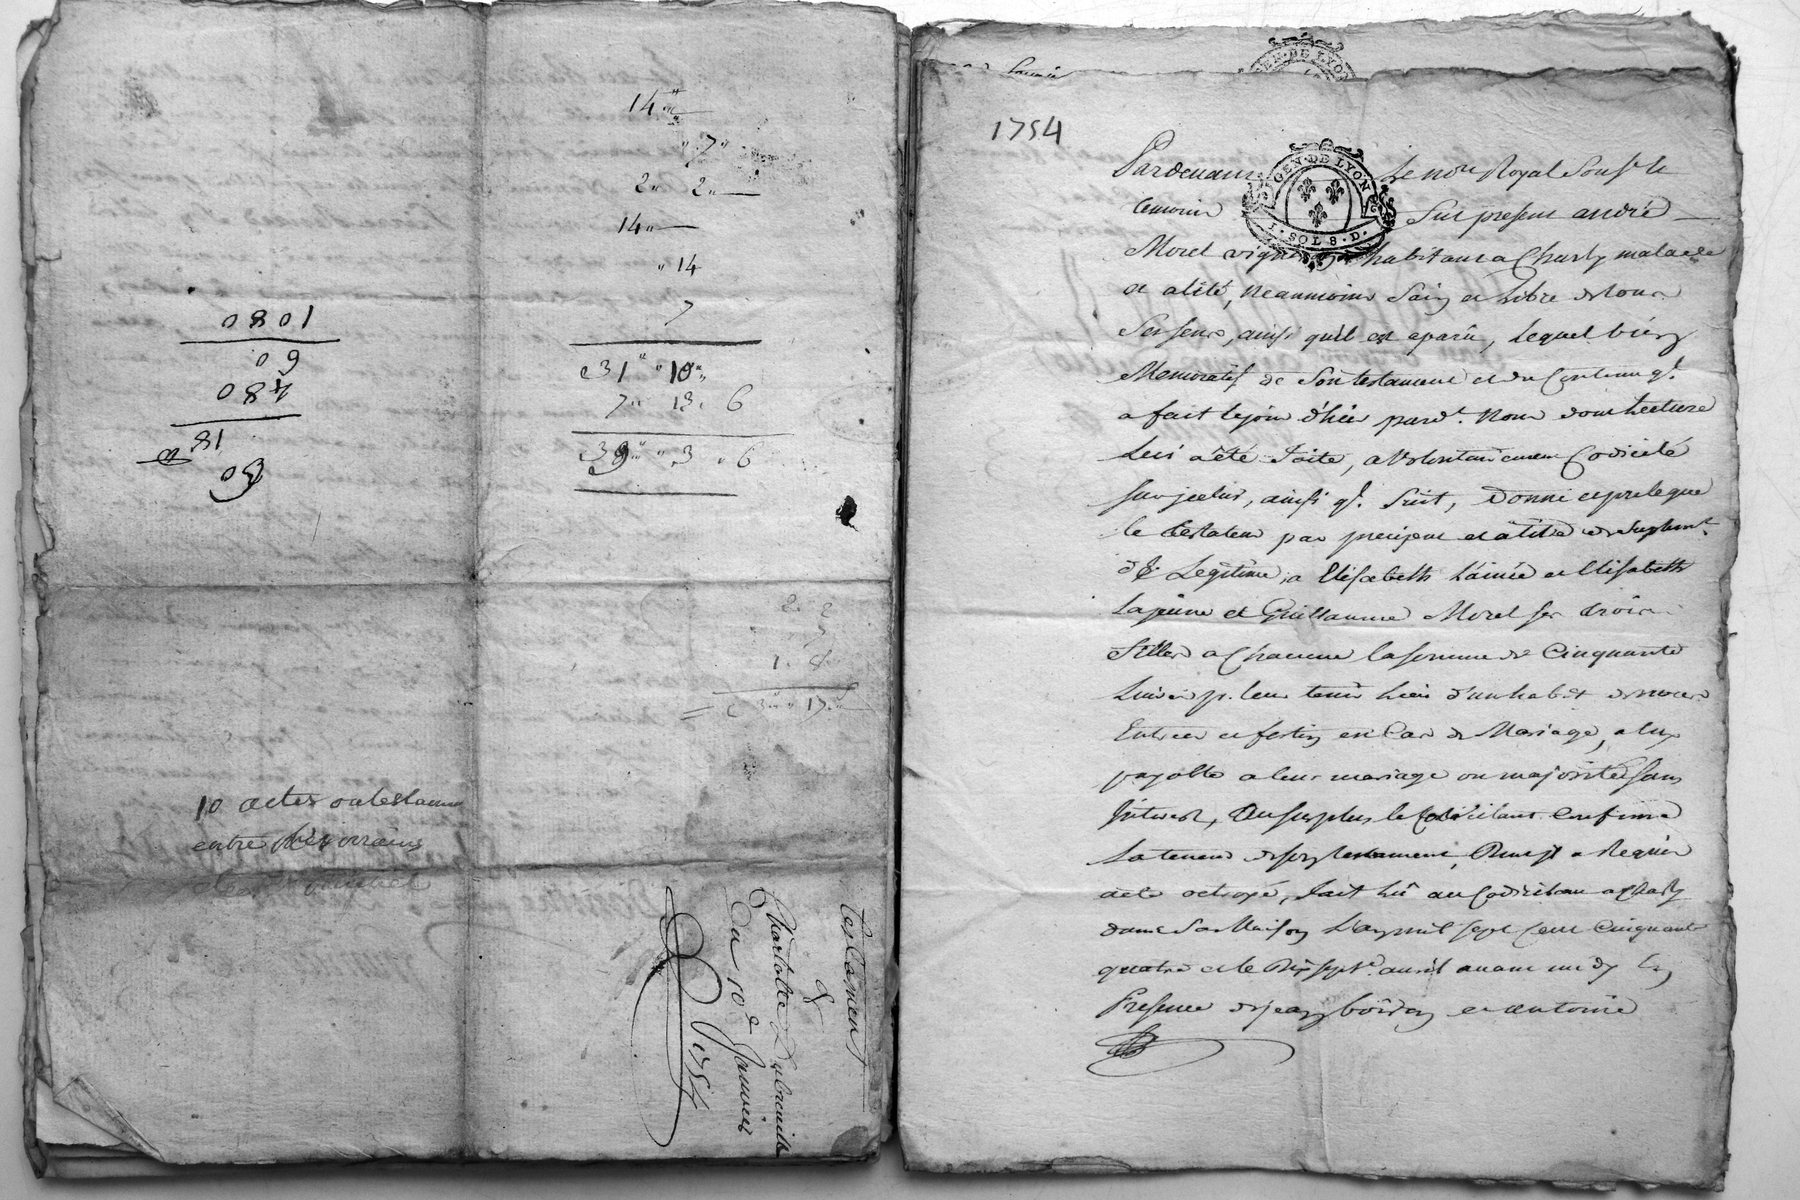 14 "
" 7 "
2 " 2 "
14 "
" 14
7
31 " 10 "
7 " 13 " 6
39 " 3 " 6
1080
90
480
81
1 . 8
3 " 17 "
10 actes ou testamens
entre
Testament
de
Charlotte Dubreuille
Du 10e Janvier
1754
GEN · DE LYON
1754
GEN · DE LYON
I · SOL 8 · D ·
Pardevant Le nore Royal Sousse. le
temoins Sut present andré
Morel vigneron habitant a Charly malade
et alité, Neanmoins Sain et Libre de tous
Ses sens, ainsi quil est aparû, Lequel bién
Memoratif de Son testament et du Contenu ql.
a fait le jour d'hier pard.t Nous dont Lecture
Lui a été faite, a Volontairement Codicilé
sur jcelui, ainsi ql. Suit, Donne et prelegue
le testateur par preciput et à titre de Suplemt.
de Legitime, a Elisabeth L'ainée et Elisabeth
La jeune et Guillaume Morel ses trois
filles a Chacune la somme de Cinquante
Livres pr. leur tenir Lieu d'un habit de noces
Entrées et festin en Cas de Mariage, a lux
payable a leur mariage ou majorité sans
jnterest, Au surplus le Codicilant Confirme
La teneur de son testament, Dont jl a Requis
acte octroyé, fait Lû au Codicilant a Charly
dans Sa Maison L'an mil sept Cent Cinquante
quatre et le Dix septe. avril avant midy En
Presence de jean boirdon et antoine